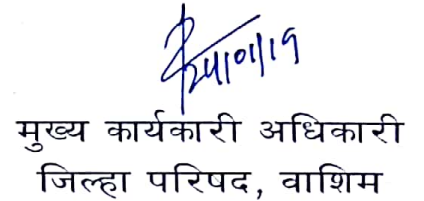 24/01/19
मुख्य कार्यकारी अधिकारी
जिल्हा परिषद, वाशिम